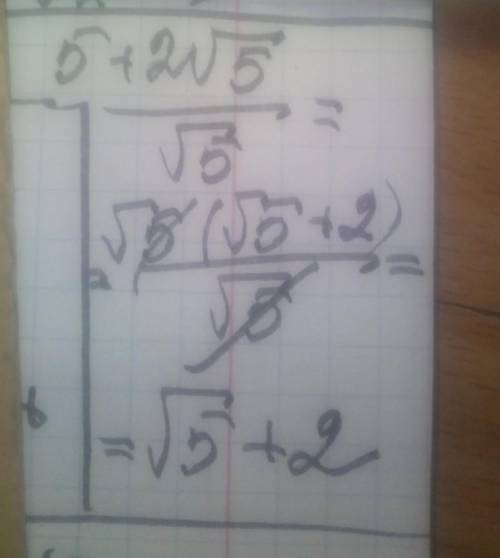 5 + 2√5
√5 =
= √5 (√5 + 2)
√5 =
= √5 + 2